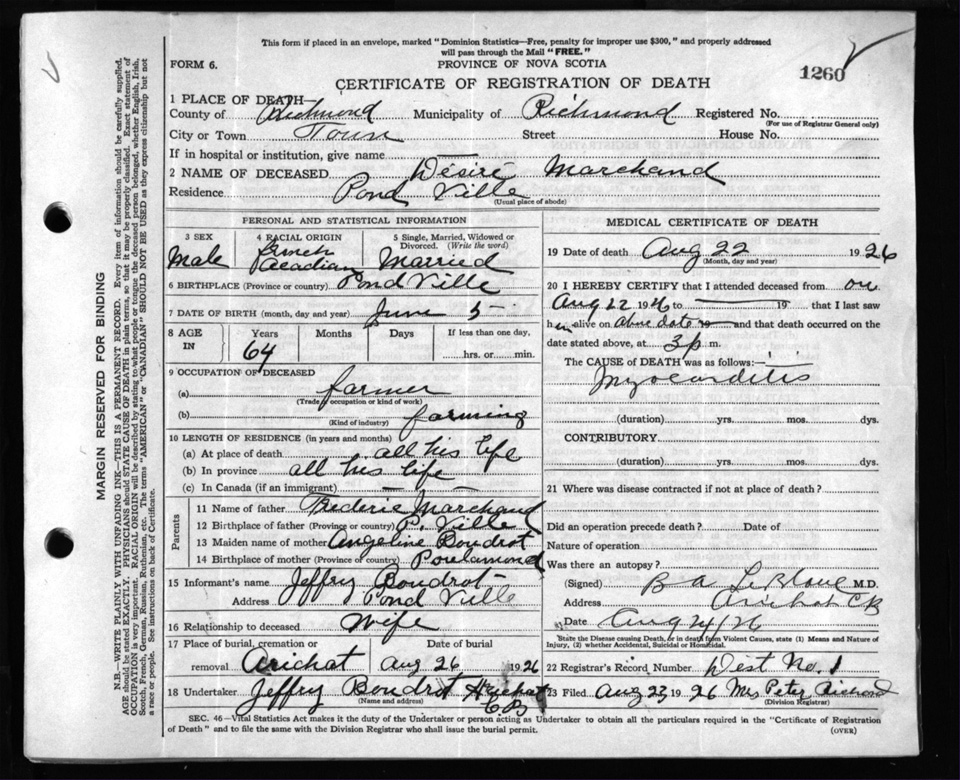 This form if placed in an envelope, marked "Dominion Statistics—Free, penalty for improper use $300," and properly addressed
will pass through the Mail "FREE."
FORM 6.
PROVINCE OF NOVA SCOTIA
1260
CERTIFICATE OF REGISTRATION OF DEATH
1 PLACE OF DEATH—
County of Richmond Municipality of Richmond Registered No.
(For use of Registrar General only)
City or Town Town Street House No.
If in hospital or institution, give name
2 NAME OF DECEASED Désiré Marchand
Residence Pond Ville
(Usual place of abode)
PERSONAL AND STATISTICAL INFORMATION
3 SEX 4 RACIAL ORIGIN 5 Single, Married, Widowed or Divorced. (Write the word)
Male french Acadian Married
6 BIRTHPLACE (Province or country) Pond Ville
7 DATE OF BIRTH (month, day and year) June 5
8 AGE IN Years Months Days If less than one day,
64 hrs. or min.
9 OCCUPATION OF DECEASED
(a) farmer
(Trade, occupation or kind of work)
(b) farming
(Kind of industry)
10 LENGTH OF RESIDENCE (in years and months)
(a) At place of death all his life
(b) In province all his life
(c) In Canada (if an immigrant) — —
Parents
11 Name of father Frederic Marchand
12 Birthplace of father (Province or country) P. Ville
13 Maiden name of mother Angeline Boudrot
14 Birthplace of mother (Province or country) Poulamond
15 Informant's name Jeffry Boudrot
Address Pond Ville
16 Relationship to deceased Wife
17 Place of burial, cremation or removal Date of burial
Arichat Aug 26 1926
18 Undertaker Jeffry Boudrot Arichat
(Name and address) CB
MEDICAL CERTIFICATE OF DEATH
19 Date of death Aug 22 1926
(Month, day and year)
20 I HEREBY CERTIFY that I attended deceased from on
Aug 22 1926 to — 19 that I last saw
him alive on above date — and that death occurred on the
date stated above, at 3 p. m.
The CAUSE of DEATH was as follows:—
Myocarditis
(duration) yrs. mos. dys.
CONTRIBUTORY
(duration) yrs. mos. dys.
21 Where was disease contracted if not at place of death?
Did an operation precede death? Date of
Nature of operation
Was there an autopsy?
(Signed) B A LeBlanc M.D.
Address Arichat CB
Date Aug 24/26
State the Disease causing Death, or in death from Violent Causes, state (1) Means and Nature of
Injury, (2) whether Accidental, Suicidal or Homicidal.
22 Registrar's Record Number West No. 1
23 Filed Aug 23 1926 Mrs Peter Richard
(Division Registrar)
SEC. 46—Vital Statistics Act makes it the duty of the Undertaker or person acting as Undertaker to obtain all the particulars required in the "Certificate of Registration
of Death" and to file the same with the Division Registrar who shall issue the burial permit.
(OVER)
MARGIN RESERVED FOR BINDING
N.B.—WRITE PLAINLY WITH UNFADING INK—THIS IS A PERMANENT RECORD. Every item of information should be carefully supplied.
AGE should be stated EXACTLY. PHYSICIANS should STATE CAUSE OF DEATH in plain terms, so that it may be properly classified. Exact statement of
OCCUPATION is very important. RACIAL ORIGIN will be described by stating to what people or tongue the deceased person belonged, whether English, Irish,
Scotch, French, German, Russian, Ruthenian, etc. The terms "AMERICAN" or "CANADIAN" SHOULD NOT BE USED as they express citizenship but not
a race or people. See instructions on back of Certificate.